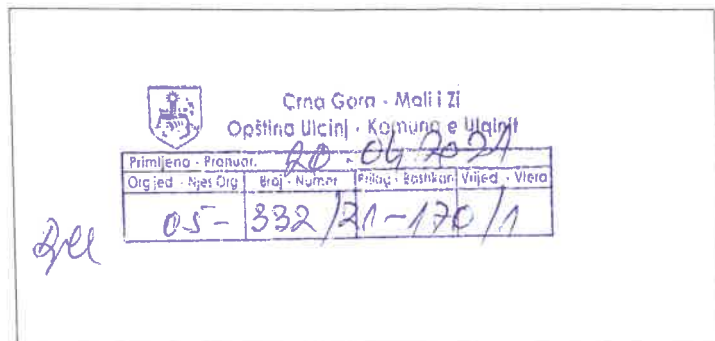 Crna Gora - Mali i Zi
Opština Ulcinj - Komuna e Ulqinit
Primljeno - Pranuar. 20.04 2021
Org jed - Njes Org Broj - Numer Prilog - Bashkan Vrijed - Vlera
05- 332/21-170/1